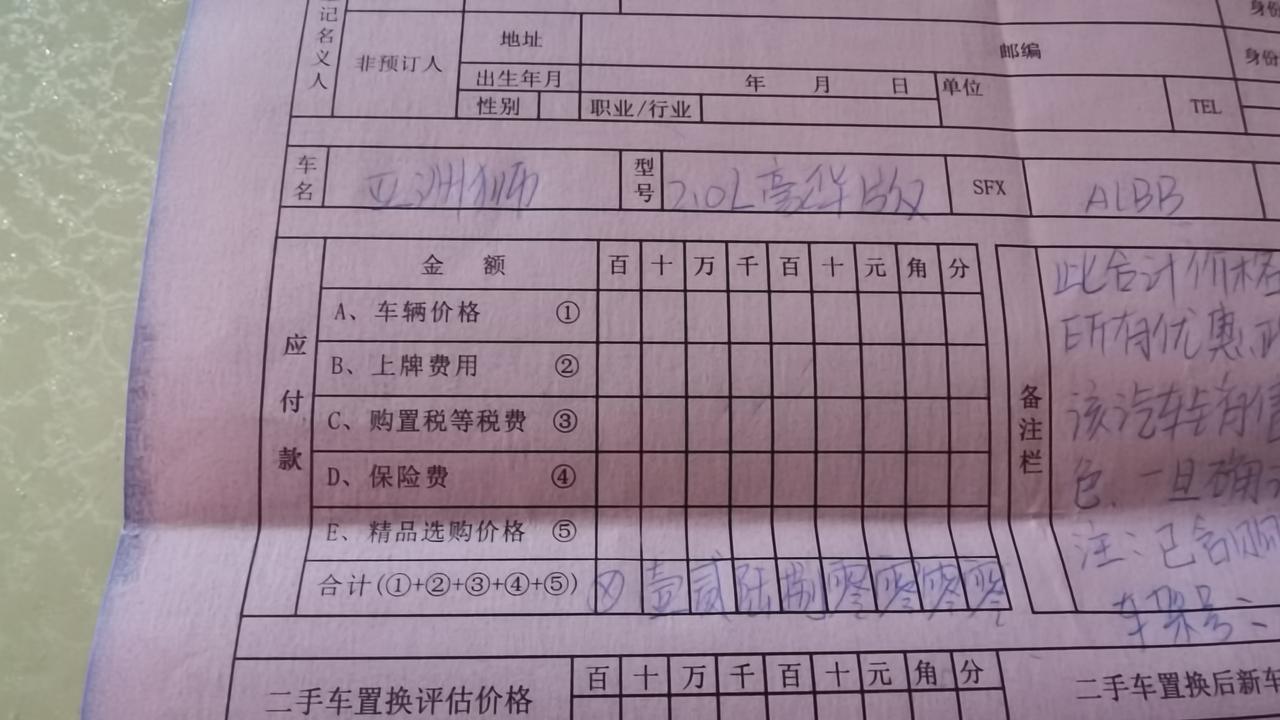 记名义人
非预订人
地址
邮编
身份
出生年月
年 月 日
单位
TEL
身份
性别
职业/行业
车名
亚洲狮
型号
2.0L豪华版
SFX
A1BB
应付款
金额 百 十 万 千 百 十 元 角 分
A、车辆价格 ①
B、上牌费用 ②
C、购置税等税费 ③
D、保险费 ④
E、精品选购价格 ⑤
合计(①+②+③+④+⑤) ⊗ 壹 贰 陆 捌 零 零 零 零
备注栏
此合计价格
所有优惠
该汽车
色.一旦确
注：已含
车架号：
二手车置换评估价格 百 十 万 千 百 十 元 角 分
二手车置换后新车